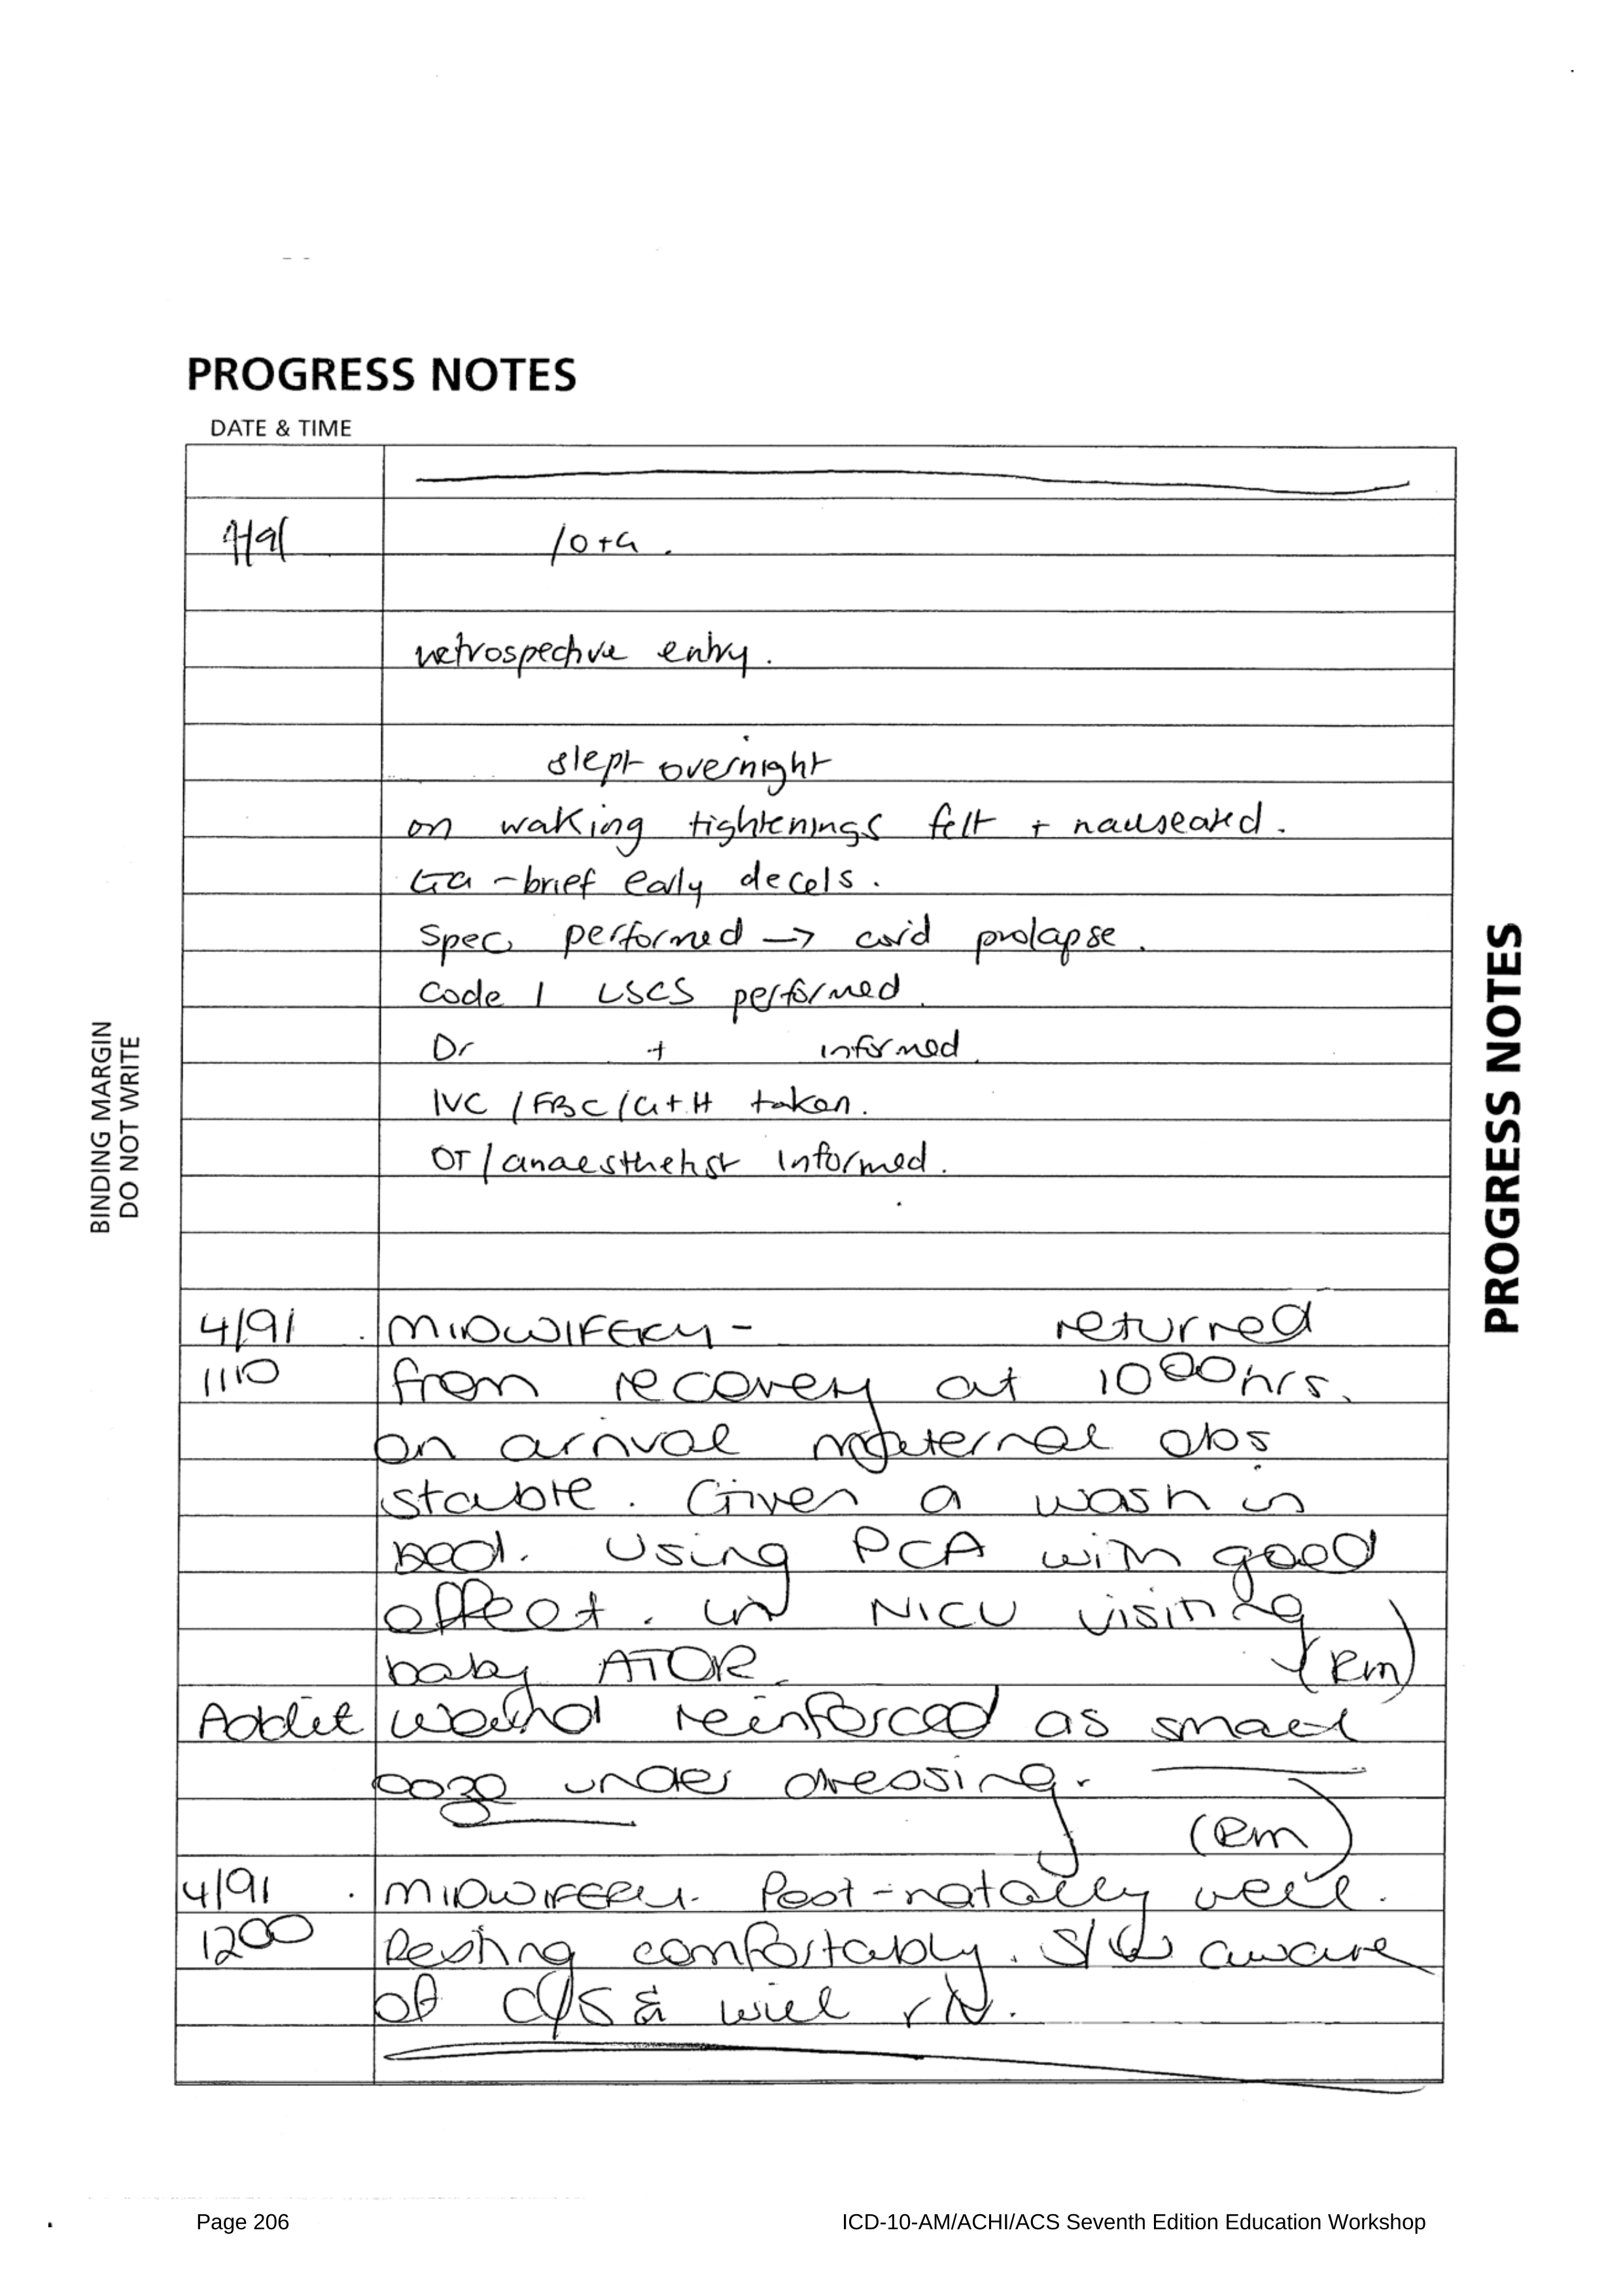 PROGRESS NOTES
DATE & TIME
4/9/ /O+G.
retrospective entry.
slept overnight
on waking tightenings felt + nauseated.
CTG - brief early decels.
Spec performed → cord prolapse.
Code 1 LSCS performed.
Dr + informed.
IVC / FBC / G+H taken.
OT / anaesthetist informed.
4/9/ MIDWIFERY - returned
1110 from recovery at 1000hrs.
On arrival maternal obs
stable. Given a wash in
bed. Using PCA with good
effect. in NICU visiting
baby ATOR. (RM)
Addit wound reinforced as small
ooze under dressing.
(RM)
4/9/ MIDWIFERY. Post-natally well.
1200 Resting comfortably. S/W aware
of C/S & will r/v.
BINDING MARGIN
DO NOT WRITE
PROGRESS NOTES
Page 206 ICD-10-AM/ACHI/ACS Seventh Edition Education Workshop